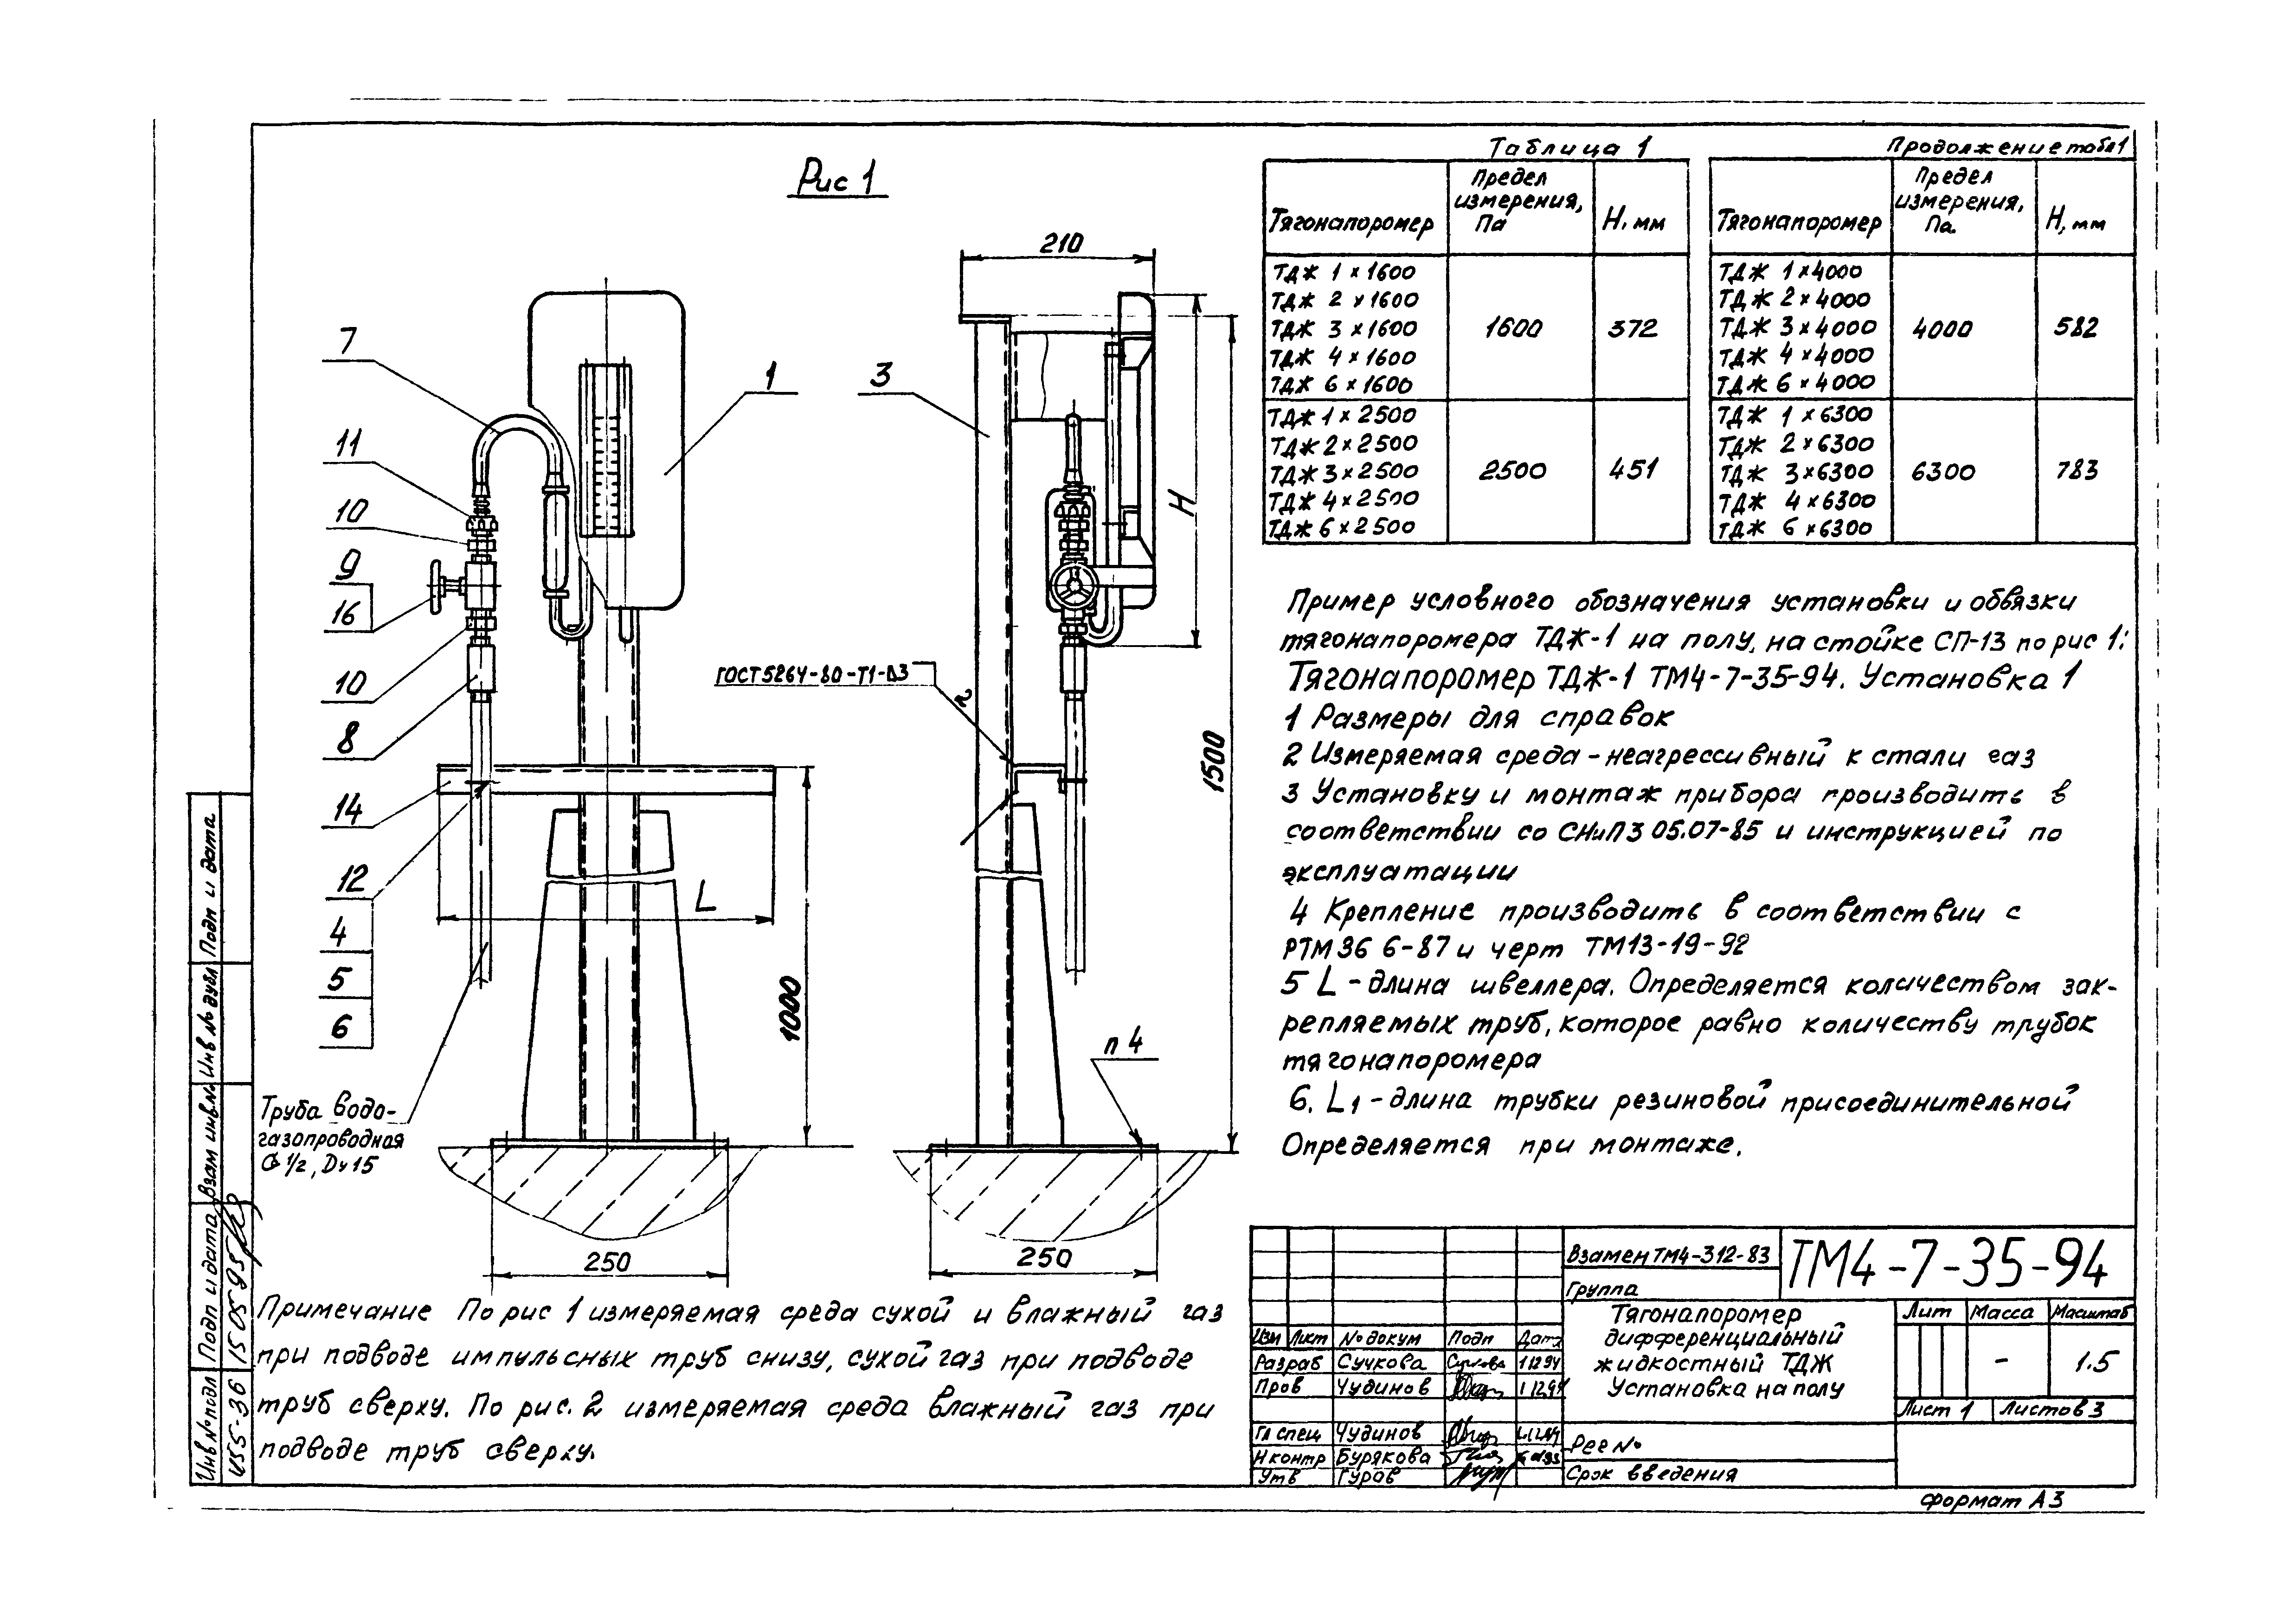 Рис 1
Таблица 1
Тягонапоромер
Предел измерения, Па
Н, мм
ТДЖ 1 × 1600
ТДЖ 2 × 1600
ТДЖ 3 × 1600
ТДЖ 4 × 1600
ТДЖ 6 × 1600
1600
372
ТДЖ 1 × 2500
ТДЖ 2 × 2500
ТДЖ 3 × 2500
ТДЖ 4 × 2500
ТДЖ 6 × 2500
2500
451
Продолжение табл 1
Тягонапоромер
Предел измерения, Па
Н, мм
ТДЖ 1 × 4000
ТДЖ 2 × 4000
ТДЖ 3 × 4000
ТДЖ 4 × 4000
ТДЖ 6 × 4000
4000
582
ТДЖ 1 × 6300
ТДЖ 2 × 6300
ТДЖ 3 × 6300
ТДЖ 4 × 6300
ТДЖ 6 × 6300
6300
783
210
7
1
3
11
10
9
16
10
8
14
12
4
5
6
H
L
ГОСТ 5264-80-Т1-⊿3
2
1500
1000
п 4
Труба водо-
газопроводная
G 1/2, Dу 15
250
250
Пример условного обозначения установки и обвязки
тягонапоромера ТДЖ-1 на полу, на стойке СП-13 по рис 1:
Тягонапоромер ТДЖ-1 ТМ4-7-35-94. Установка 1
1 Размеры для справок
2 Измеряемая среда - неагрессивный к стали газ
3 Установку и монтаж прибора производить в
соответствии со СНиП 3 05.07-85 и инструкцией по
эксплуатации
4 Крепление производить в соответствии с
РТМ 36 6-87 и черт ТМ13-19-92
5 L - длина швеллера. Определяется количеством зак-
репляемых труб, которое равно количеству трубок
тягонапоромера
6. L1 - длина трубки резиновой присоединительной
Определяется при монтаже.
Примечание По рис 1 измеряемая среда сухой и влажный газ
при подводе импульсных труб снизу, сухой газ при подводе
труб сверху. По рис. 2 измеряемая среда влажный газ при
подводе труб сверху.
Подп и дата
Инв № дубл
Взам инв №
Подп и дата
15 05 95
Инв № подл
455-36
Взамен ТМ4-312-83
ТМ4-7-35-94
Группа
Тягонапоромер
дифференциальный
жидкостный ТДЖ
Установка на полу
Лит Масса Масштаб
- 1.5
Лист 1 Листов 3
Изм Лист № докум Подп Дата
Разраб Сучкова Сучкова 1 12 94
Пров Чудинов 1 12 94
Гл спец Чудинов
Н контр Бурякова
Утв Гуров
Рег №
Срок введения
Формат А3